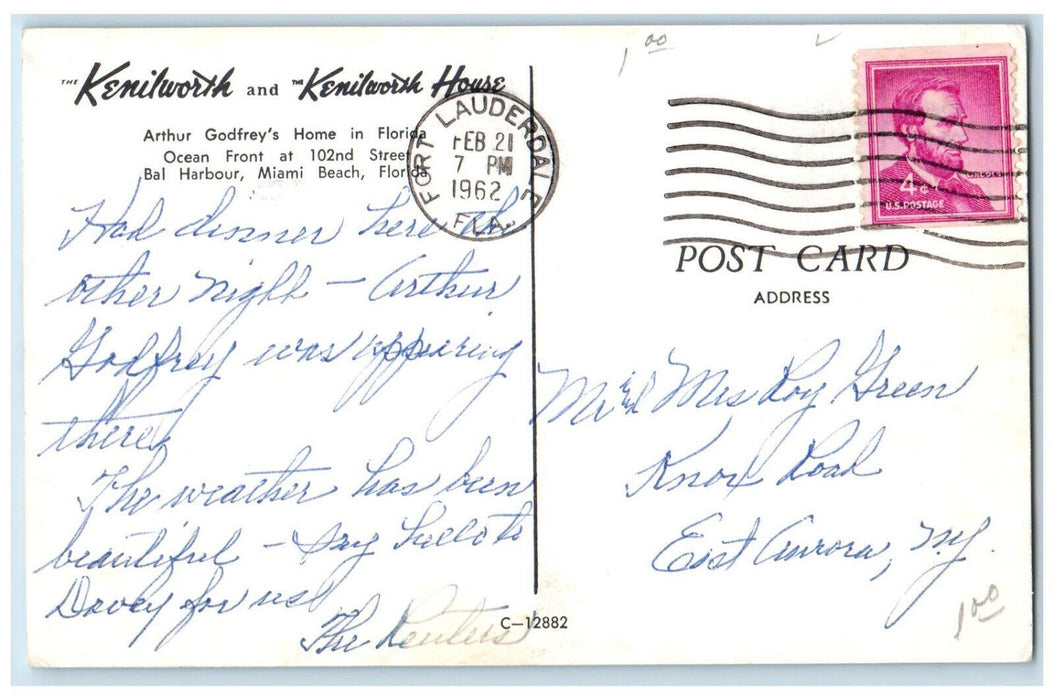 THE Kenilworth and THE Kenilworth House
Arthur Godfrey's Home in Florida
Ocean Front at 102nd Street
Bal Harbour, Miami Beach, Florida
FORT LAUDERDALE
FEB 21
7 PM
1962
FLA.
1.00
LINCOLN
4¢
U.S. POSTAGE
POST CARD
ADDRESS
Had dinner here the
other night – Arthur
Godfrey was appearing
there.
The weather has been
beautiful – Say hello to
Davey for us!
The Reuters
Mr and Mrs Roy Green
Knox Road
East Aurora, N.Y.
C–12882
1.00